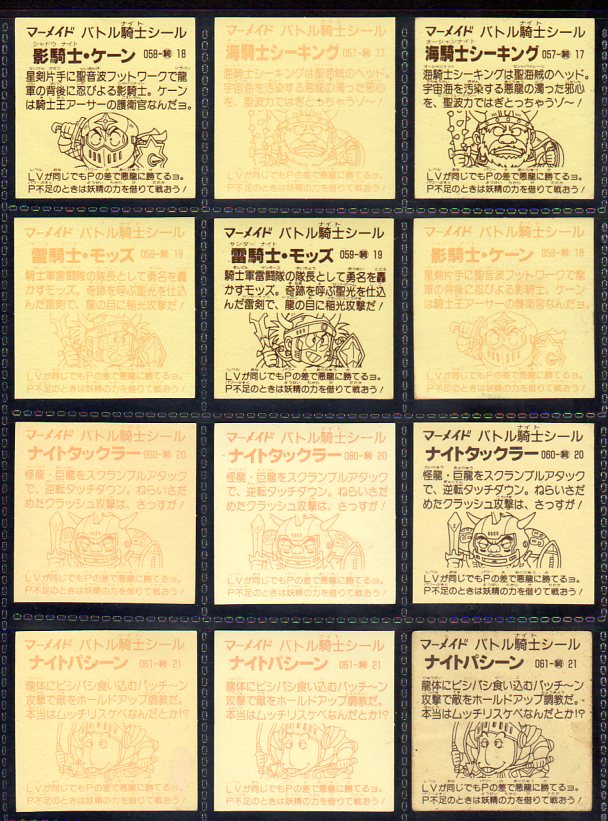 マーメイド バトル騎士シール
影騎士・ケーン 058-㊙ 18
星剣片手に聖音波フットワークで龍
軍の背後に忍びよる影騎士。ケーン
は騎士王アーサーの護衛官なんだョ。
LVが同じでもPの差で悪龍に勝てるョ。
P不足のときは妖精の力を借りて戦おう!
マーメイド バトル騎士シール
海騎士シーキング 057-㊙ 17
海騎士シーキングは聖海賊のヘッド。
宇宙海を汚染する悪龍の濁った邪心
を、聖波力ではぎとっちゃうゾ〜!
LVが同じでもPの差で悪龍に勝てるョ。
P不足のときは妖精の力を借りて戦おう!
マーメイド バトル騎士シール
海騎士シーキング 057-㊙ 17
海騎士シーキングは聖海賊のヘッド。
宇宙海を汚染する悪龍の濁った邪心
を、聖波力ではぎとっちゃうゾ〜!
LVが同じでもPの差で悪龍に勝てるョ。
P不足のときは妖精の力を借りて戦おう!
マーメイド バトル騎士シール
雷騎士・モッズ 059-㊙ 19
騎士軍雷闘隊の隊長として勇名を轟
かすモッズ。奇跡を呼ぶ聖光を仕込
んだ雷剣で、龍の目に稲光攻撃だ!
LVが同じでもPの差で悪龍に勝てるョ。
P不足のときは妖精の力を借りて戦おう!
マーメイド バトル騎士シール
雷騎士・モッズ 059-㊙ 19
騎士軍雷闘隊の隊長として勇名を轟
かすモッズ。奇跡を呼ぶ聖光を仕込
んだ雷剣で、龍の目に稲光攻撃だ!
LVが同じでもPの差で悪龍に勝てるョ。
P不足のときは妖精の力を借りて戦おう!
マーメイド バトル騎士シール
影騎士・ケーン 058-㊙ 18
星剣片手に聖音波フットワークで龍
軍の背後に忍びよる影騎士。ケーン
は騎士王アーサーの護衛官なんだョ。
LVが同じでもPの差で悪龍に勝てるョ。
P不足のときは妖精の力を借りて戦おう!
マーメイド バトル騎士シール
ナイトタックラー 060-㊙ 20
怪龍・巨龍をスクランブルアタック
で、逆転タッチダウン。ねらいさだ
めたクラッシュ攻撃は、さっすが!
LVが同じでもPの差で悪龍に勝てるョ。
P不足のときは妖精の力を借りて戦おう!
マーメイド バトル騎士シール
ナイトタックラー 060-㊙ 20
怪龍・巨龍をスクランブルアタック
で、逆転タッチダウン。ねらいさだ
めたクラッシュ攻撃は、さっすが!
LVが同じでもPの差で悪龍に勝てるョ。
P不足のときは妖精の力を借りて戦おう!
マーメイド バトル騎士シール
ナイトタックラー 060-㊙ 20
怪龍・巨龍をスクランブルアタック
で、逆転タッチダウン。ねらいさだ
めたクラッシュ攻撃は、さっすが!
LVが同じでもPの差で悪龍に勝てるョ。
P不足のときは妖精の力を借りて戦おう!
マーメイド バトル騎士シール
ナイトパシーン 061-㊙ 21
龍体にビシバシ食い込むバッチ〜ン
攻撃で敵をホールドアップ調教だ。
本当はムッチリスケベなんだとか!?
LVが同じでもPの差で悪龍に勝てるョ。
P不足のときは妖精の力を借りて戦おう!
マーメイド バトル騎士シール
ナイトパシーン 061-㊙ 21
龍体にビシバシ食い込むバッチ〜ン
攻撃で敵をホールドアップ調教だ。
本当はムッチリスケベなんだとか!?
LVが同じでもPの差で悪龍に勝てるョ。
P不足のときは妖精の力を借りて戦おう!
マーメイド バトル騎士シール
ナイトパシーン 061-㊙ 21
龍体にビシバシ食い込むバッチ〜ン
攻撃で敵をホールドアップ調教だ。
本当はムッチリスケベなんだとか!?
LVが同じでもPの差で悪龍に勝てるョ。
P不足のときは妖精の力を借りて戦おう!